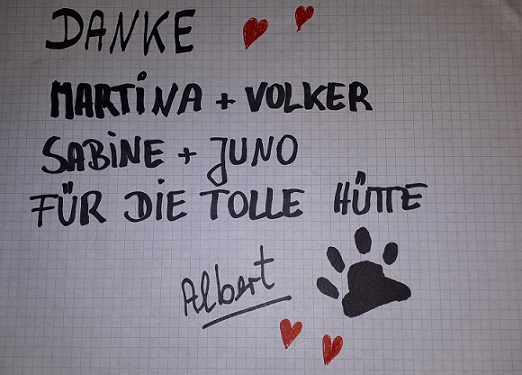 DANKE
MARTINA + VOLKER
SABINE + JUNO
FÜR DIE TOLLE HÜTTE
Albert